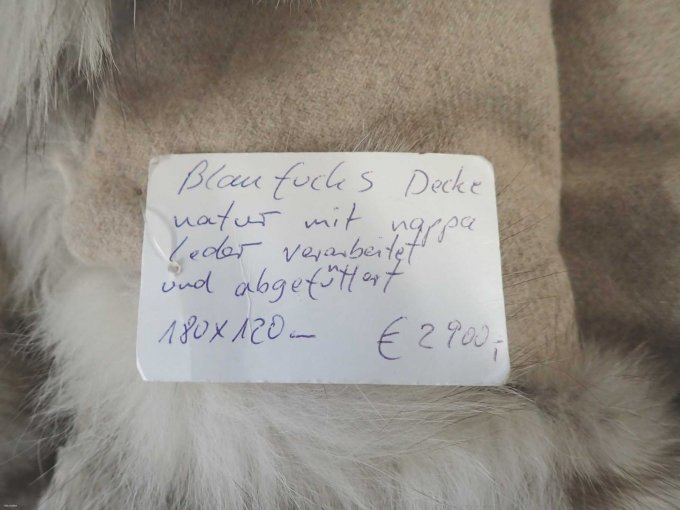 Blaufuchs Decke
natur mit nappa
leder verarbeitet
und abgefüttert
180x120cm € 2900,-